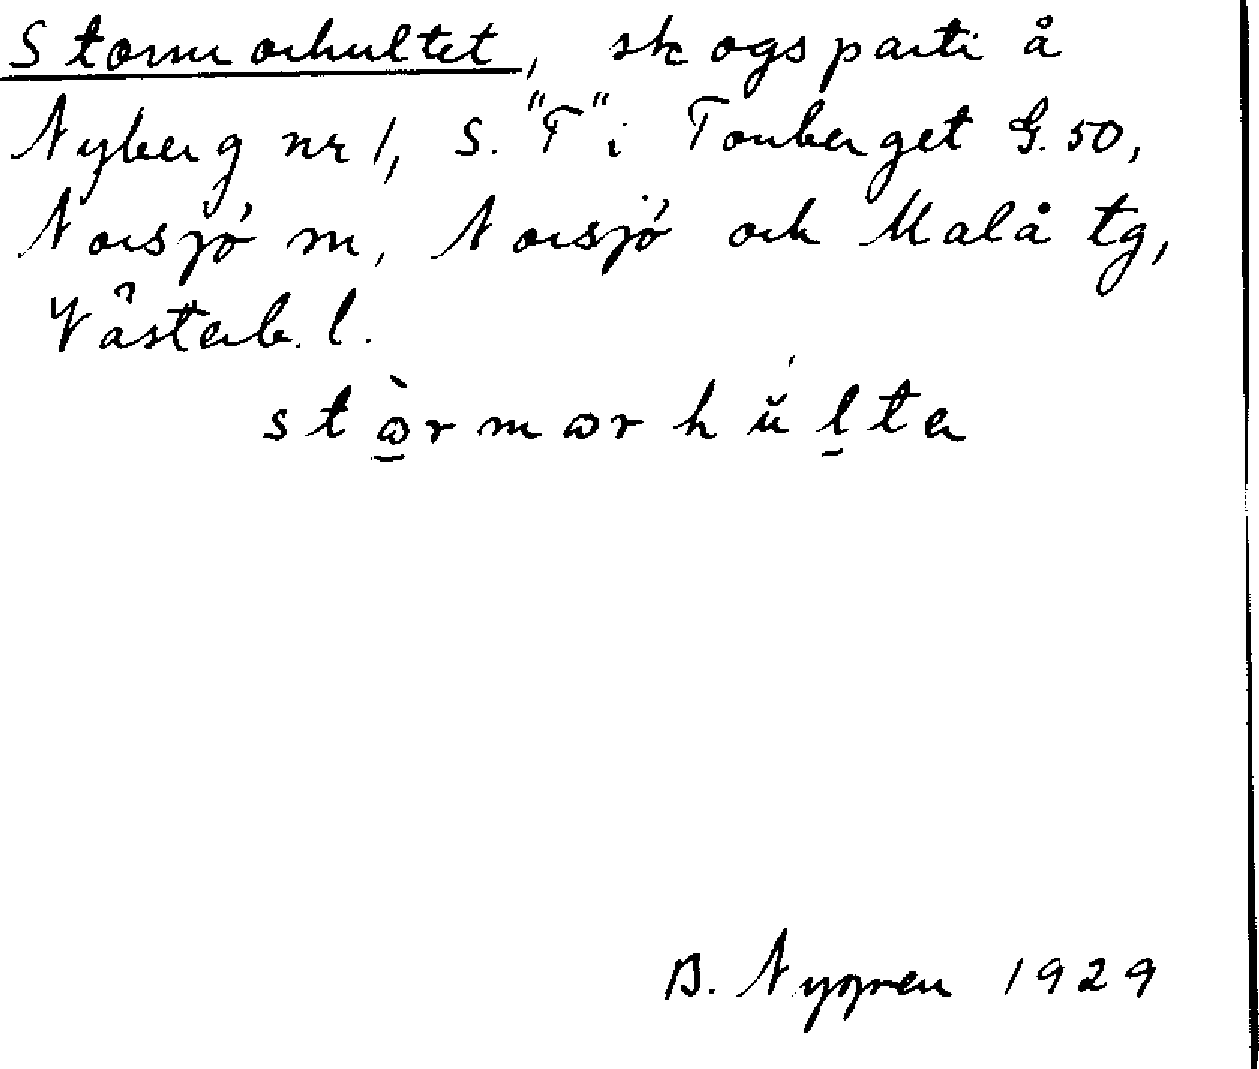 Stormorhultet, skogsparti å
Nyberg nr 1, S. "T" i Torrberget G.50,
Norsjö sn, Norsjö och Malå tg,
Västerb. l.
B. Nygren 1929